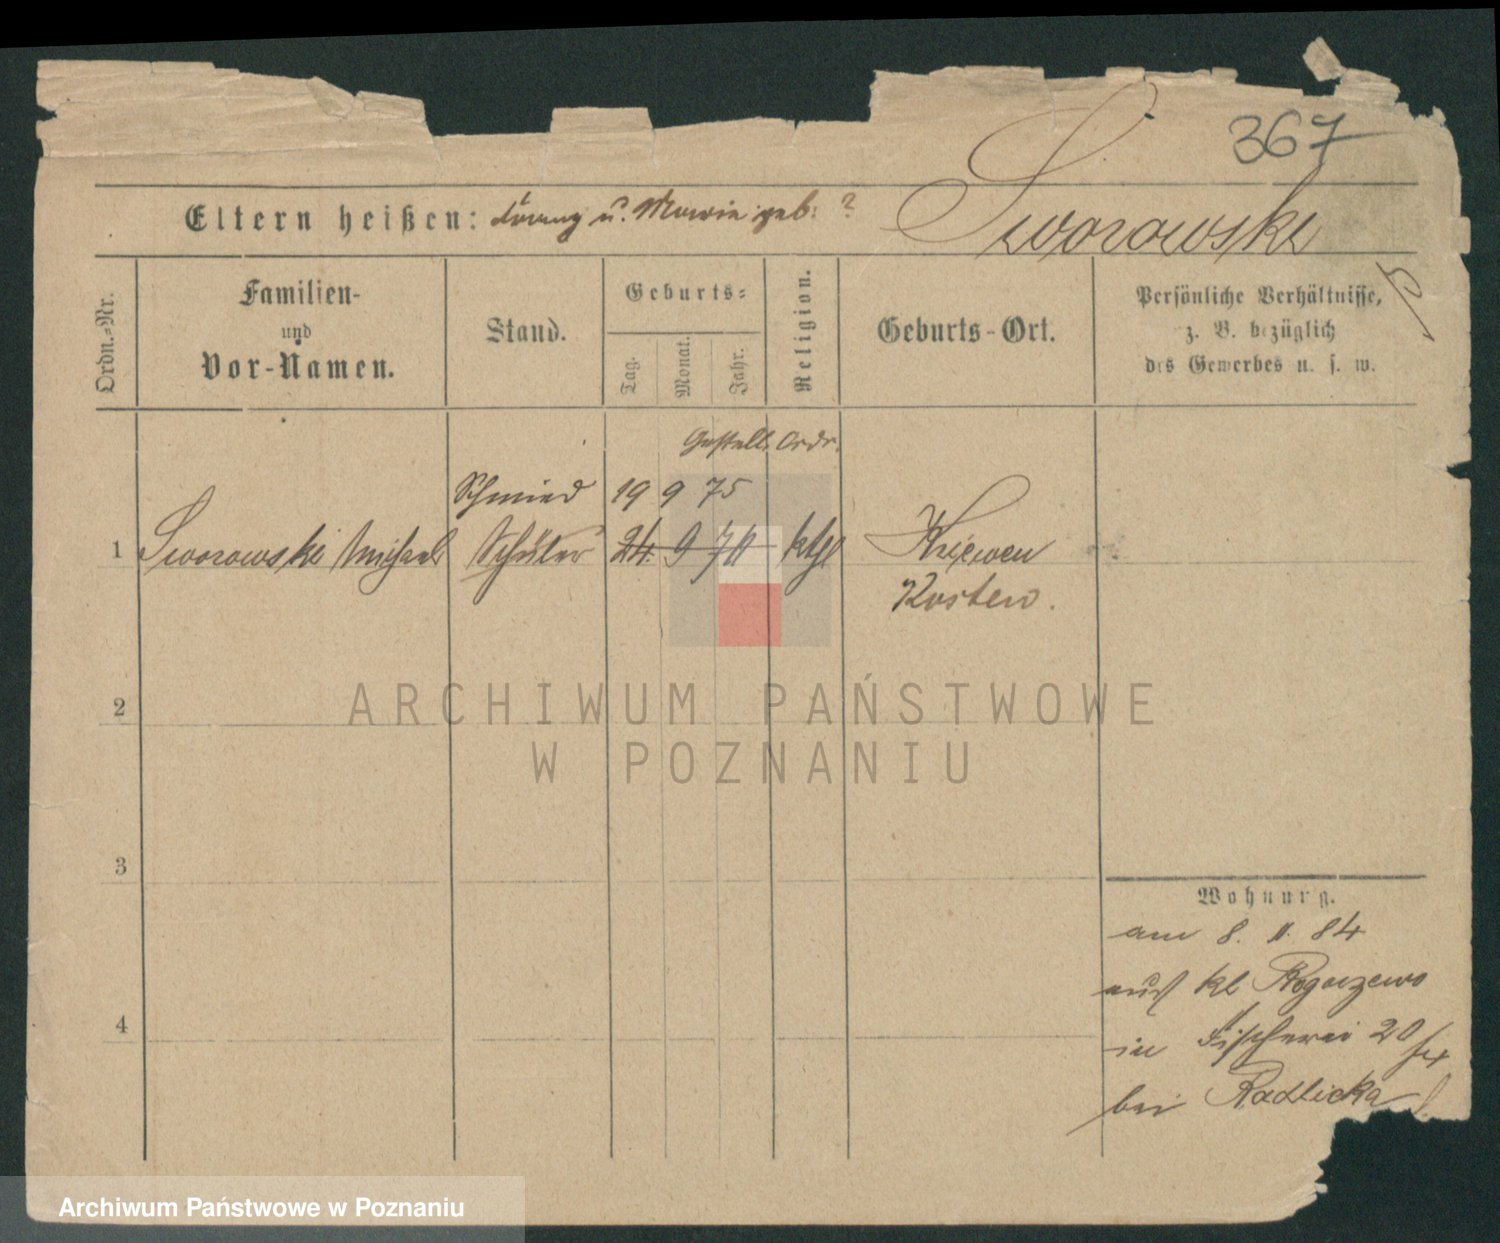 367
Eltern heißen: Franz u. Marie geb: ? Sworowski
Ordn.-Nr.
Familien-
und
Vor-Namen.
Stand.
Geburts-
Tag.
Monat.
Jahr.
Religion.
Geburts-Ort.
Persönliche Verhältnisse,
z. B. bezüglich
des Gewerbes u. s. w.
Gestell. Ordr.
Schmied 19 9 75
1 Sworowski Michael Schüler 24. 9 70 kthl Kriewen
Kosten.
2
3
4
Wohnung.
am 8. 11. 84
aus kl Rogaczewo
in Fischerei 20
bei Radlicka
ARCHIWUM PAŃSTWOWE
W POZNANIU
Archiwum Państwowe w Poznaniu